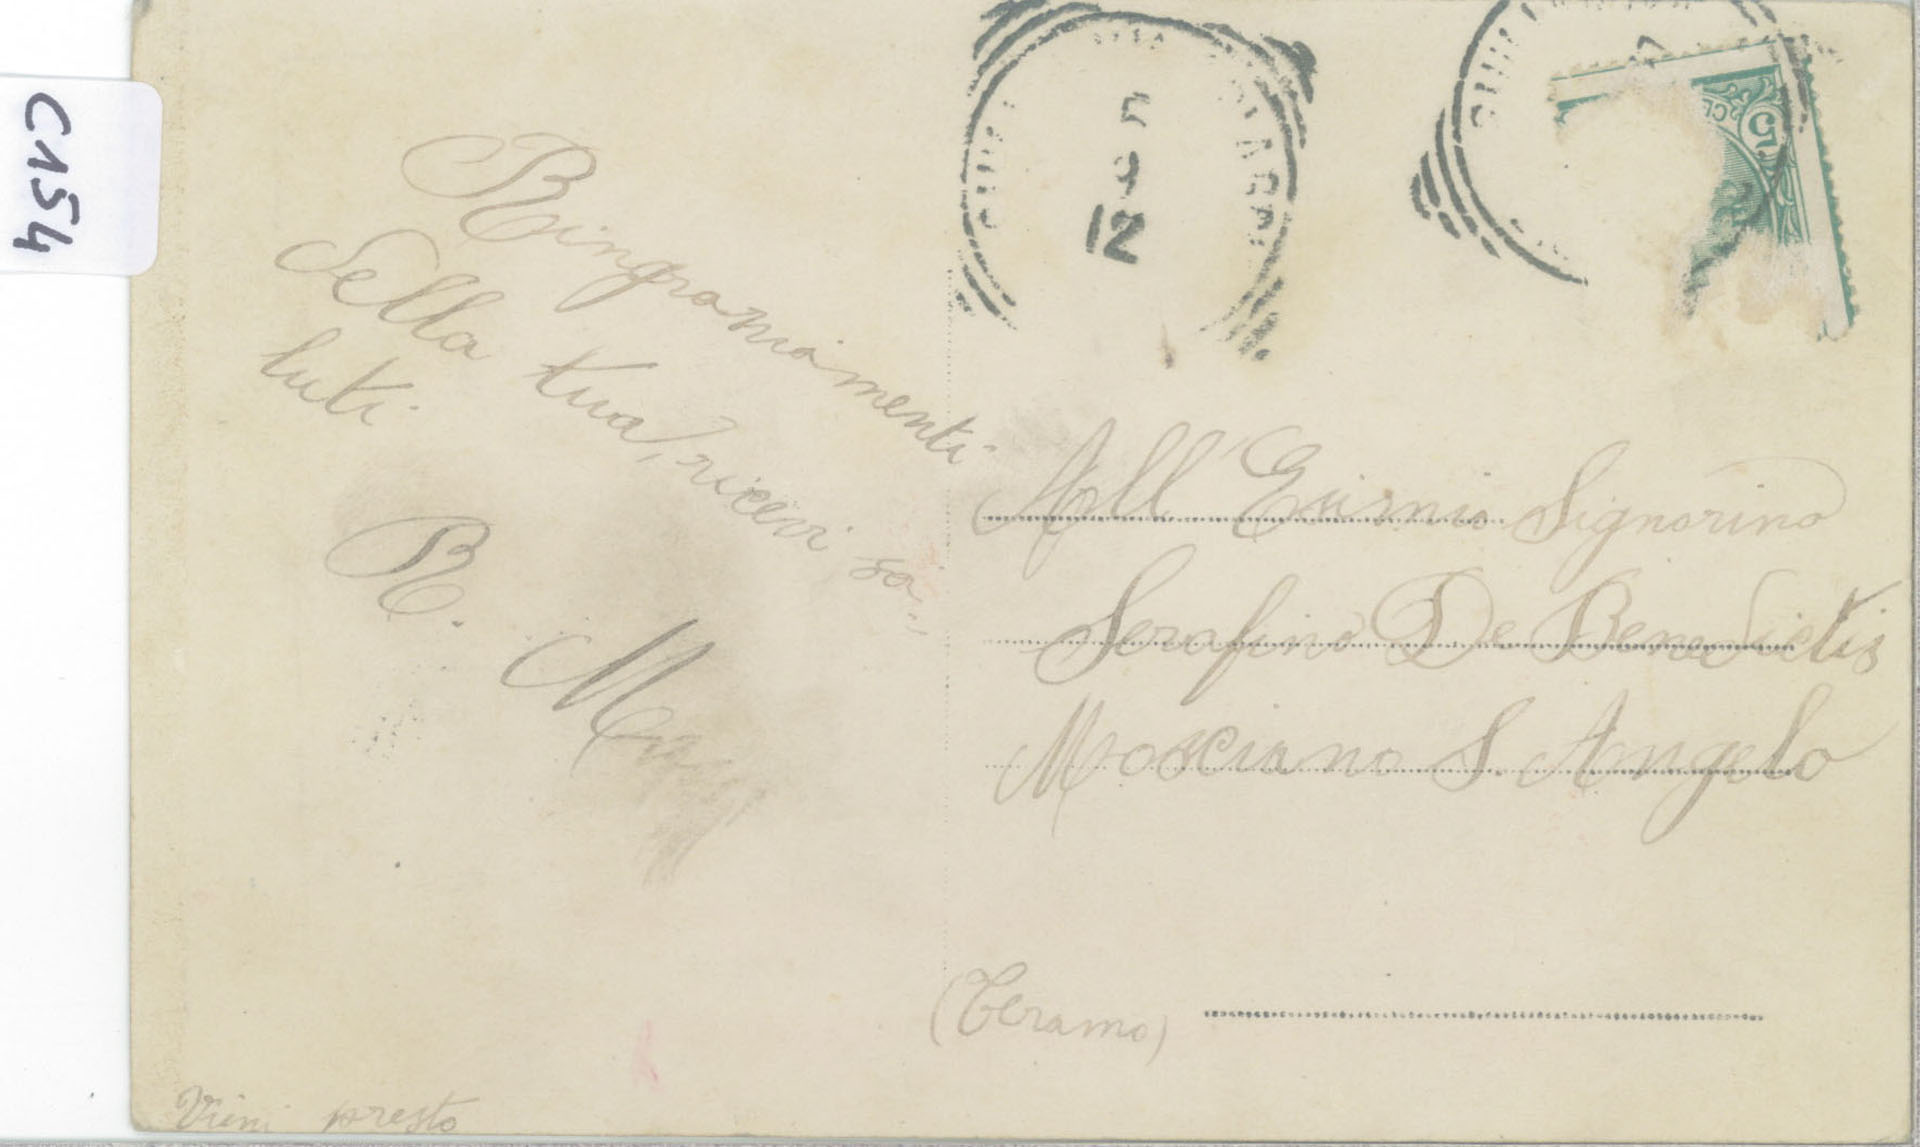 C154
5
9
12
5
Ringraziamenti
della tua, ricevi sa-
luti.
R.
All' Esimio Signorino
Serafino De Benedictis
Mosciano S. Angelo
(Teramo)
Vieni presto